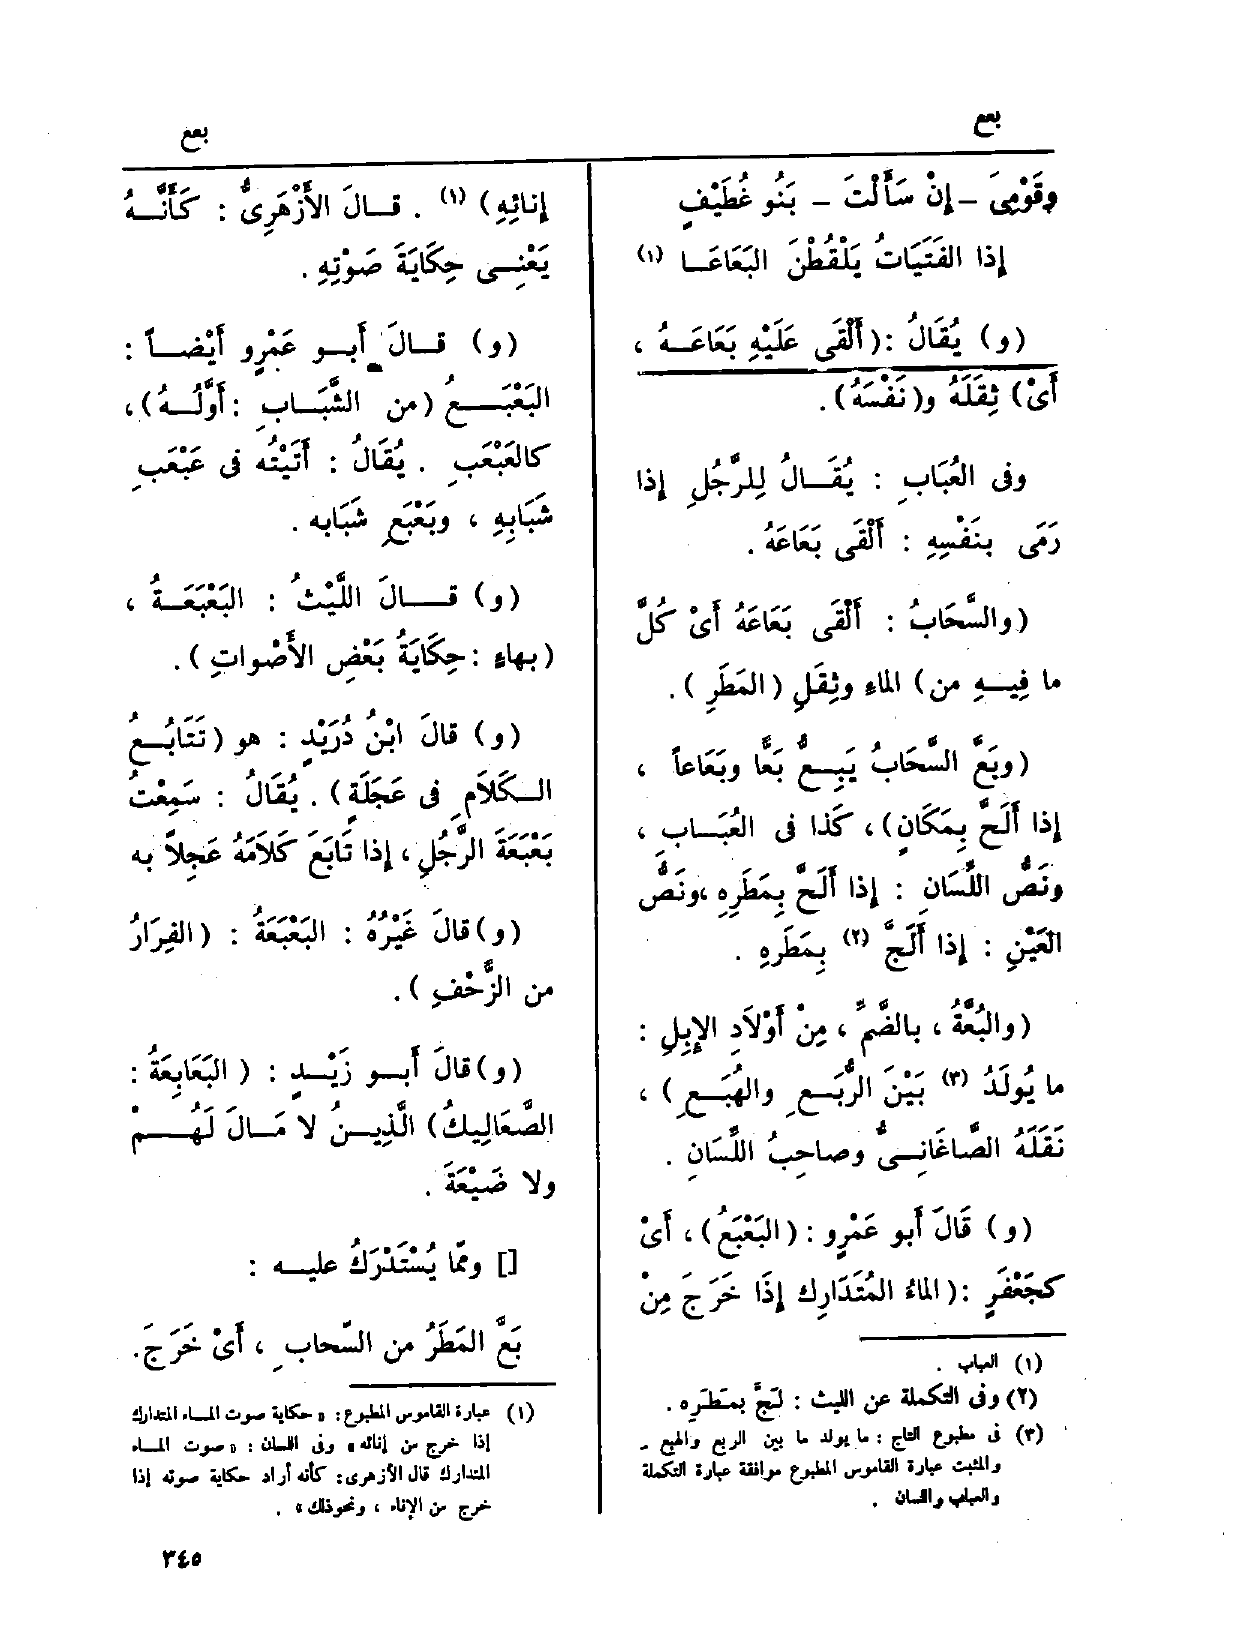 بعع
بعع
وقَوْمِىَ -إِنْ سَأَلْتَ - بَنُو غُطَيْفٍ
إِذا الفَتَيَاتُ يَلْقُطْنَ البَعَاعَـا (١)
(و) يُقَالُ :(أَلْقَى عَلَيْهِ بَعَاعَـهُ ،
أَىْ) ثِقَلَهُ و(نَفْسَهُ).
وفى العُبَابِ : يُقَــالُ لِلرَّجُلِ إِذا
رَمَى بِنَفْسِهِ : أَلْقَى بَعَاعَهُ .
(والسَّحَابُ : أَلْقَى بَعَاعَهُ أَىْ كُلَّ
ما فِيــهِ من) الماءِ وثِقَلِ (المَطَرِ ).
(وبَعَّ السَّحَابُ يَبِــعُّ بَعًّا وبَعَاعاً ،
إِذا أَلَحَّ بِمَكَانٍ)، كَذا فى العُبَــابِ ،
ونَصُّ اللِّسَانِ : إِذا أَلَحَّ بِمَطَرِهِ ،ونَصُّ
العَيْنِ : إِذا أَلَجَّ (٢) بِمَطَرِهِ .
(والبُعَّةُ ، بالضَّمِّ ، مِنْ أَوْلَادِ الإِبِلِ :
ما يُولَدُ (٣) بَيْنَ الرُّبَـعِ والهُبَـعِ ) ،
نَقَلَهُ الصَّاغَانِــىُّ وصاحِبُ اللِّسَانِ .
(و) قَالَ أَبو عَمْرٍو :(البَعْبَعُ)، أَىْ
كجَعْفَرٍ :(الماءُ المُتَدَارِك إِذَا خَرَجَ مِنْ
(١) العباب .
(٢) وفى التكملة عن الليث : لَجَّ بمَطَرِه .
(٣) فى مطبوع التاج : ما يولد ما بين الربع والهبع -
والمثبت عبارة القاموس المطبوع موافقة عبارة التكملة
والعباب واللسان .
إِنائِهِ) (١) . قــالَ الأَزْهَرِىُّ : كَأَنَّــهُ
يَعْنِــى حِكَايَةَ صَوْتِهِ .
(و) قــالَ أَبــو عَمْرٍو أَيْضــاً :
البَعْبَــــعُ (من الشَّبَــابِ :أَوَّلُــهُ)،
كالعَبْعَبِ . يُقَالُ : أَتَيْتُه فى عَبْعَبِ
شَبَابِهِ ، وبَعْبَعِ شَبَابه .
(و) قــــالَ اللَّيْثُ : البَعْبَعَــةُ ،
(بهاءٍ :حِكَايَةُ بَعْضِ الأَصْواتِ ).
(و) قالَ ابْنُ دُرَيْدٍ : هو (تَتَابُــعُ
الــكَلاَمِ فى عَجَلَةٍ) . يُقَالُ : سَمِعْتُ
بَعْبَعَةَ الرَّجُلِ ، إِذا تَابَعَ كَلاَمَهُ عَجِلاً به
(و)قالَ غَيْرُهُ : البَعْبَعَةُ : (الفِرَارُ
من الزَّحْفِ ).
(و)قالَ أَبــو زَيْــدٍ : ( البَعَابِعَةُ :
الصَّعَالِيكُ) الَّذِيــنُ لا مَــالَ لَهُــمْ
ولا ضَيْعَةَ .
[] ومّا يُسْتَدْرَكُ عليــه :
بَعَّ المَطَرُ من السَّحابِ ، أَىْ خَرَجَ.
(١) عبارة القاموس المطبوع: «حكاية صوت المــاء المتدارك
إذا خرج من إنائه» وفى اللسان : «صوت المــاء
المتدارك قال الأزهرى: كأنه أراد حكاية صوته إذا
خرج من الإناء ، ونحوذلك» .
٣٤٥